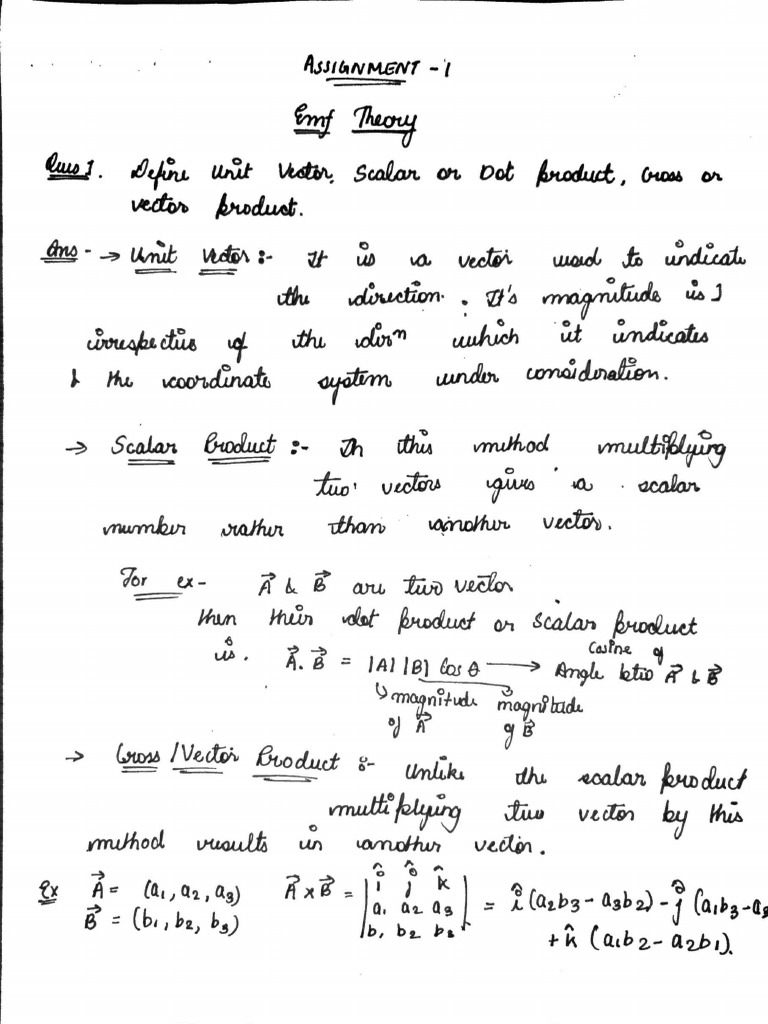 ASSIGNMENT - 1
Emf Theory
Ques 1. Define Unit Vector, Scalar or Dot product, Cross or
vector product.
Ans - → Unit Vector :- It is a vector used to indicate
the direction. It's magnitude is 1
irrespective of the dirⁿ which it indicates
& the coordinate system under consideration.
→ Scalar Product :- In this method multiplying
two vectors gives a scalar
number rather than another vector.
For ex - A⃗ & B⃗ are two vector
then their dot product or scalar product
is. A⃗.B⃗ = |A| |B| Cos θ → Cosine of Angle betw A⃗ & B⃗
↳ magnitude of A⃗ magnitude of B⃗
→ Cross / Vector Product :- Unlike the scalar product
multiplying two vector by this
method results in another vector.
Ex A⃗ = (a₁, a₂, a₃) A⃗ x B⃗ = | î ĵ k̂ | = î (a₂b₃ - a₃b₂) - ĵ (a₁b₃ - a₃
B⃗ = (b₁, b₂, b₃) | a₁ a₂ a₃ |
| b₁ b₂ b₃ | + k̂ (a₁b₂ - a₂b₁).